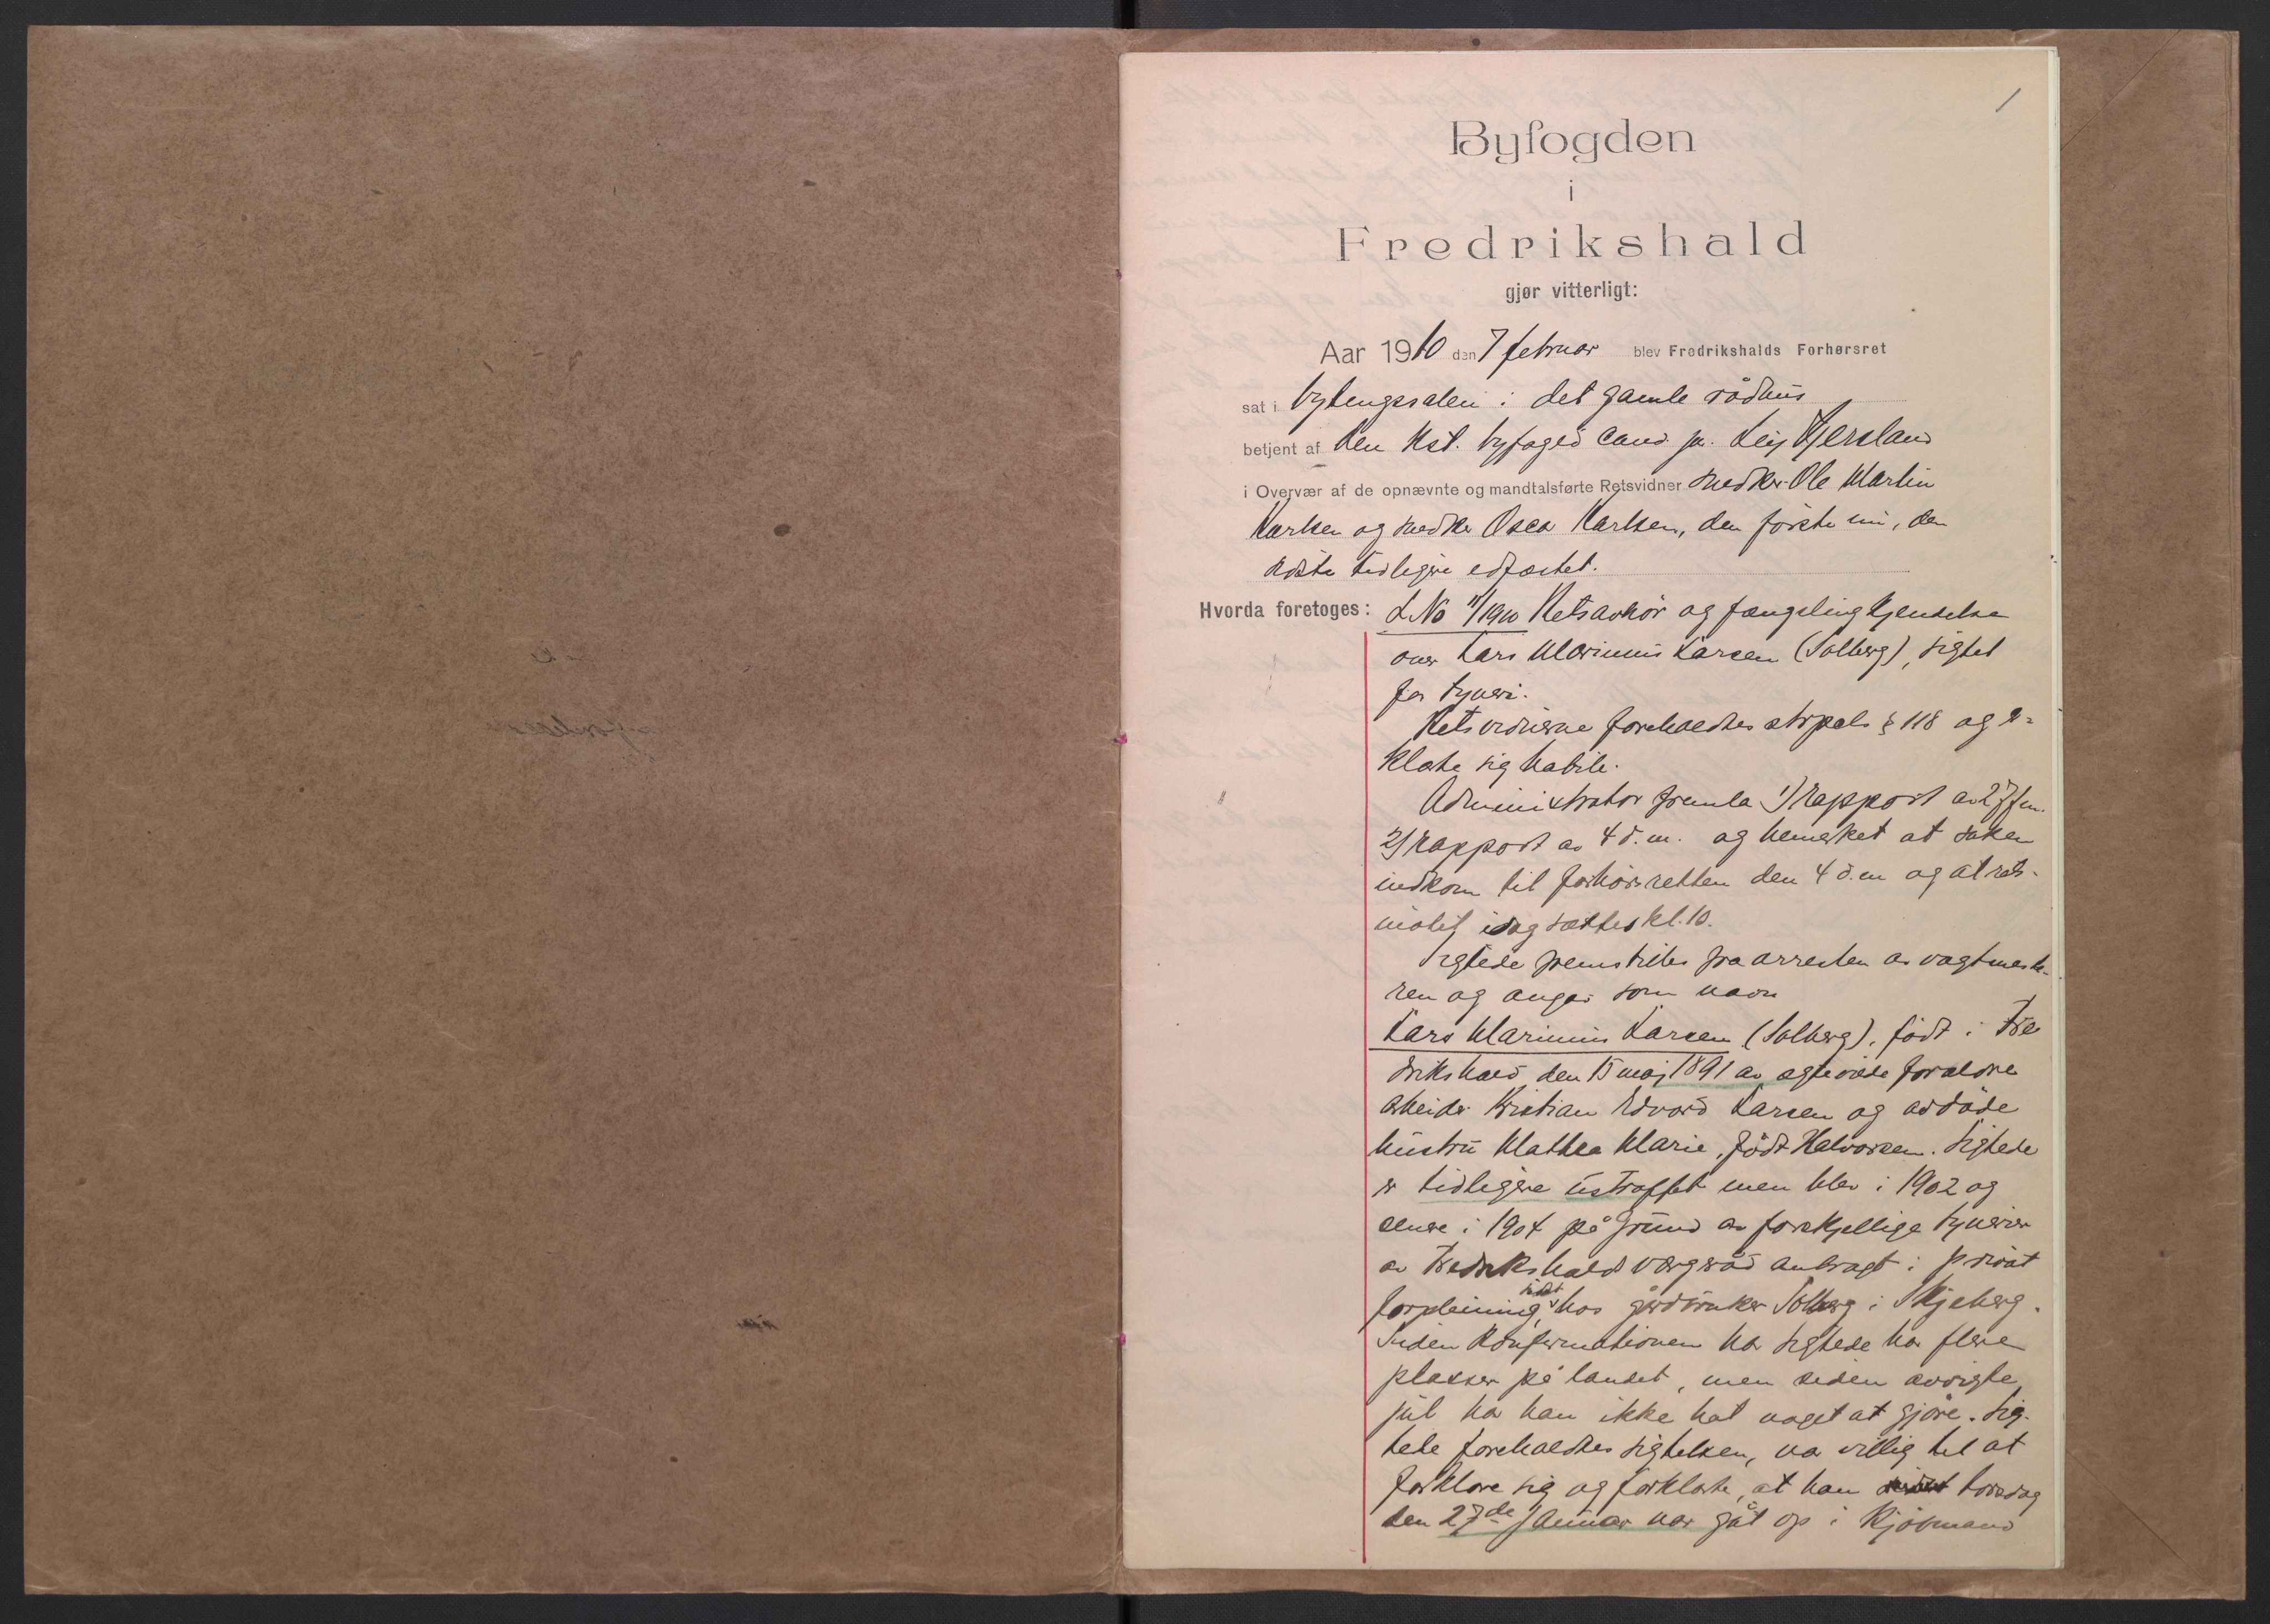 1
Byfogden
i
Fredrikshald
gjør vitterligt:
Aar 1910 den 7 februar blev Fredrikshalds Forhørsret
sat i bytingssalen i det gamle rådhus
betjent af den kst. byfoged cand. jur. Leif Kjersland
i Overvær af de opnævnte og mandtalsførte Retsvidner snedker Ole Martin
Karlsen og snedker Oscar Karlsen, den første nu, den
sidste tidligere edfæstet.
Hvorda foretoges: L.No 11/1910 Retsavhør og fængslingskjendelse
over Lars Marinius Larsen (Solberg), sigtet
for tyveri.
Retsvidnerne foreholdtes strpcls § 118 og er-
klærte sig habile.
Administrator fremla 1) rapport av 27 f.m.
2) rapport av 4 d.m. og bemerket at saken
indkom til forhørsretten den 4 d.m og at rets-
møtet idag sattes kl. 10.
Sigtede fremstilles fra arresten av vagtmeste-
ren og angav som navn
Lars Marinius Larsen (Solberg), født i Fre
drikshald den 15 maj 1891 av egteviede forældre
arbeider Kristian Edvard Larsen og avdøde
hustru Mathea Marie, født Halvorsen. Sigtede
er tidligere ustraffet men blev i 1902 og
senere i 1904 på grund av forskjellige tyverier
av Fredrikshalds vergeråd anbragt i privat
forpleining, sidst hos gårdbruker Solberg i Skjeberg.
Siden konfirmationen har sigtede hat flere
plasser på landet, men siden avvigte
jul har han ikke hat noget at gjøre. Sig-
tede foreholdtes sigtelsen, var villig til at
forklare sig og forklarte, at han torsdag
den 27de januar var gåt op i kjøbmand